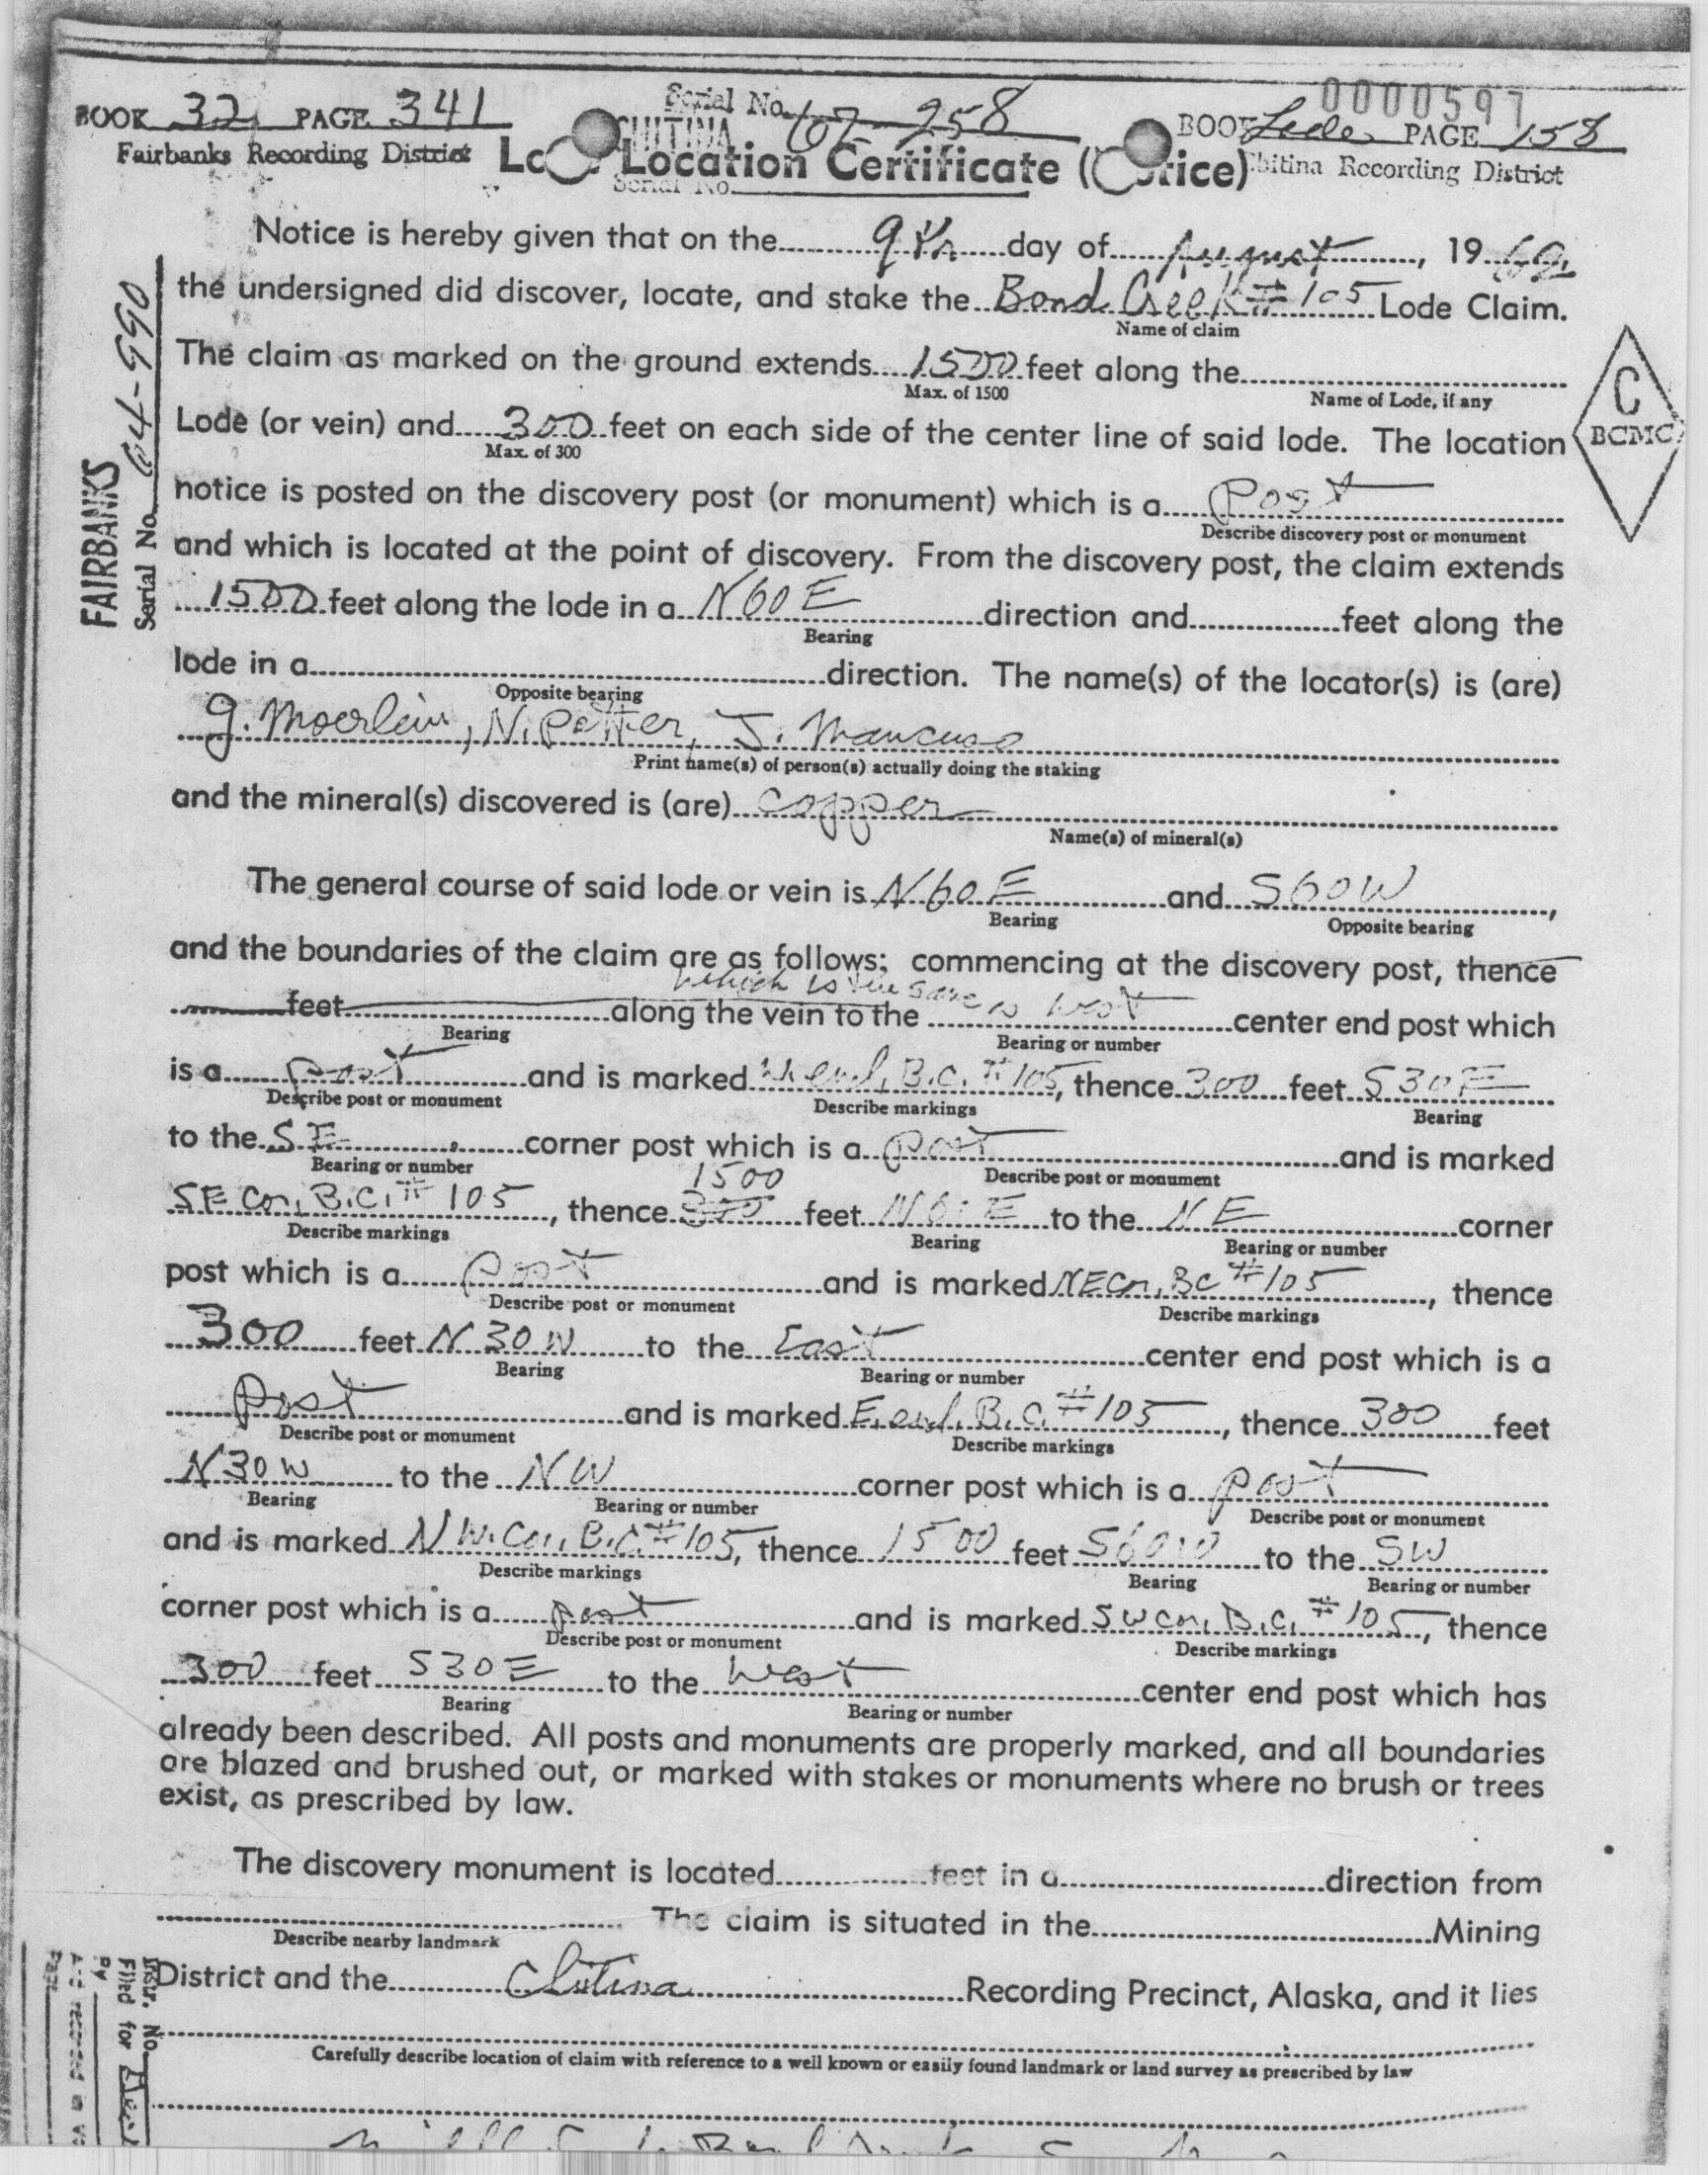 0000597
BOOK 32 PAGE 341
Serial No. 67-258
BOOK Lode PAGE 158
Fairbanks Recording District
CHITINA
Chitina Recording District
Location Certificate (Notice)
Serial No.
Notice is hereby given that on the 9th day of August, 19
the undersigned did discover, locate, and stake the Bond Creek # 105 Lode Claim.
Name of claim
The claim as marked on the ground extends 1500 feet along the
Max. of 1500 Name of Lode, if any
Lode (or vein) and 300 feet on each side of the center line of said lode. The location
Max. of 300
C
BCMC
notice is posted on the discovery post (or monument) which is a Post
Describe discovery post or monument
and which is located at the point of discovery. From the discovery post, the claim extends
1500 feet along the lode in a N60E direction and feet along the
Bearing
lode in a direction. The name(s) of the locator(s) is (are)
Opposite bearing
G. Moerlein, N. Petter, J. Mancuso
Print name(s) of person(s) actually doing the staking
and the mineral(s) discovered is (are) copper
Name(s) of mineral(s)
The general course of said lode or vein is N60E and S60W,
Bearing Opposite bearing
and the boundaries of the claim are as follows: commencing at the discovery post, thence
which is the same as
feet along the vein to the west center end post which
Bearing Bearing or number
is a post and is marked W end, B.C. #105, thence 300 feet S30E
Describe post or monument Describe markings Bearing
to the SE corner post which is a post and is marked
Bearing or number Describe post or monument
1500
SE Cor, B.C. # 105, thence 300 feet N60E to the NE corner
Describe markings Bearing Bearing or number
post which is a post and is marked NE Cor, BC #105, thence
Describe post or monument Describe markings
300 feet N 30 W to the East center end post which is a
Bearing Bearing or number
Post and is marked E. end, B.C. #105, thence 300 feet
Describe post or monument Describe markings
N30W to the NW corner post which is a post
Bearing Bearing or number Describe post or monument
and is marked N W. Cor, B.C. #105, thence 1500 feet S60W to the SW
Describe markings Bearing Bearing or number
corner post which is a post and is marked SW cor, B.C. #105, thence
Describe post or monument Describe markings
300 feet S30E to the West center end post which has
Bearing Bearing or number
already been described. All posts and monuments are properly marked, and all boundaries
are blazed and brushed out, or marked with stakes or monuments where no brush or trees
exist, as prescribed by law.
The discovery monument is located feet in a direction from
The claim is situated in the Mining
Describe nearby landmark
District and the Chitina Recording Precinct, Alaska, and it lies
Carefully describe location of claim with reference to a well known or easily found landmark or land survey as prescribed by law
FAIRBANKS
Serial No. 64-990
Instr. No.
Filed for
By
Page